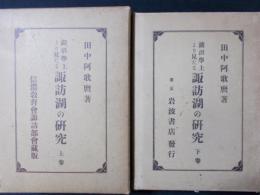 田中阿歌麿著
湖沼學上
より見たる
諏訪湖の研究 上巻
信濃教育會諏訪部會藏版
田中阿歌麿著
湖沼學上
より見たる
諏訪湖の研究 下巻
東京 岩波書店發行